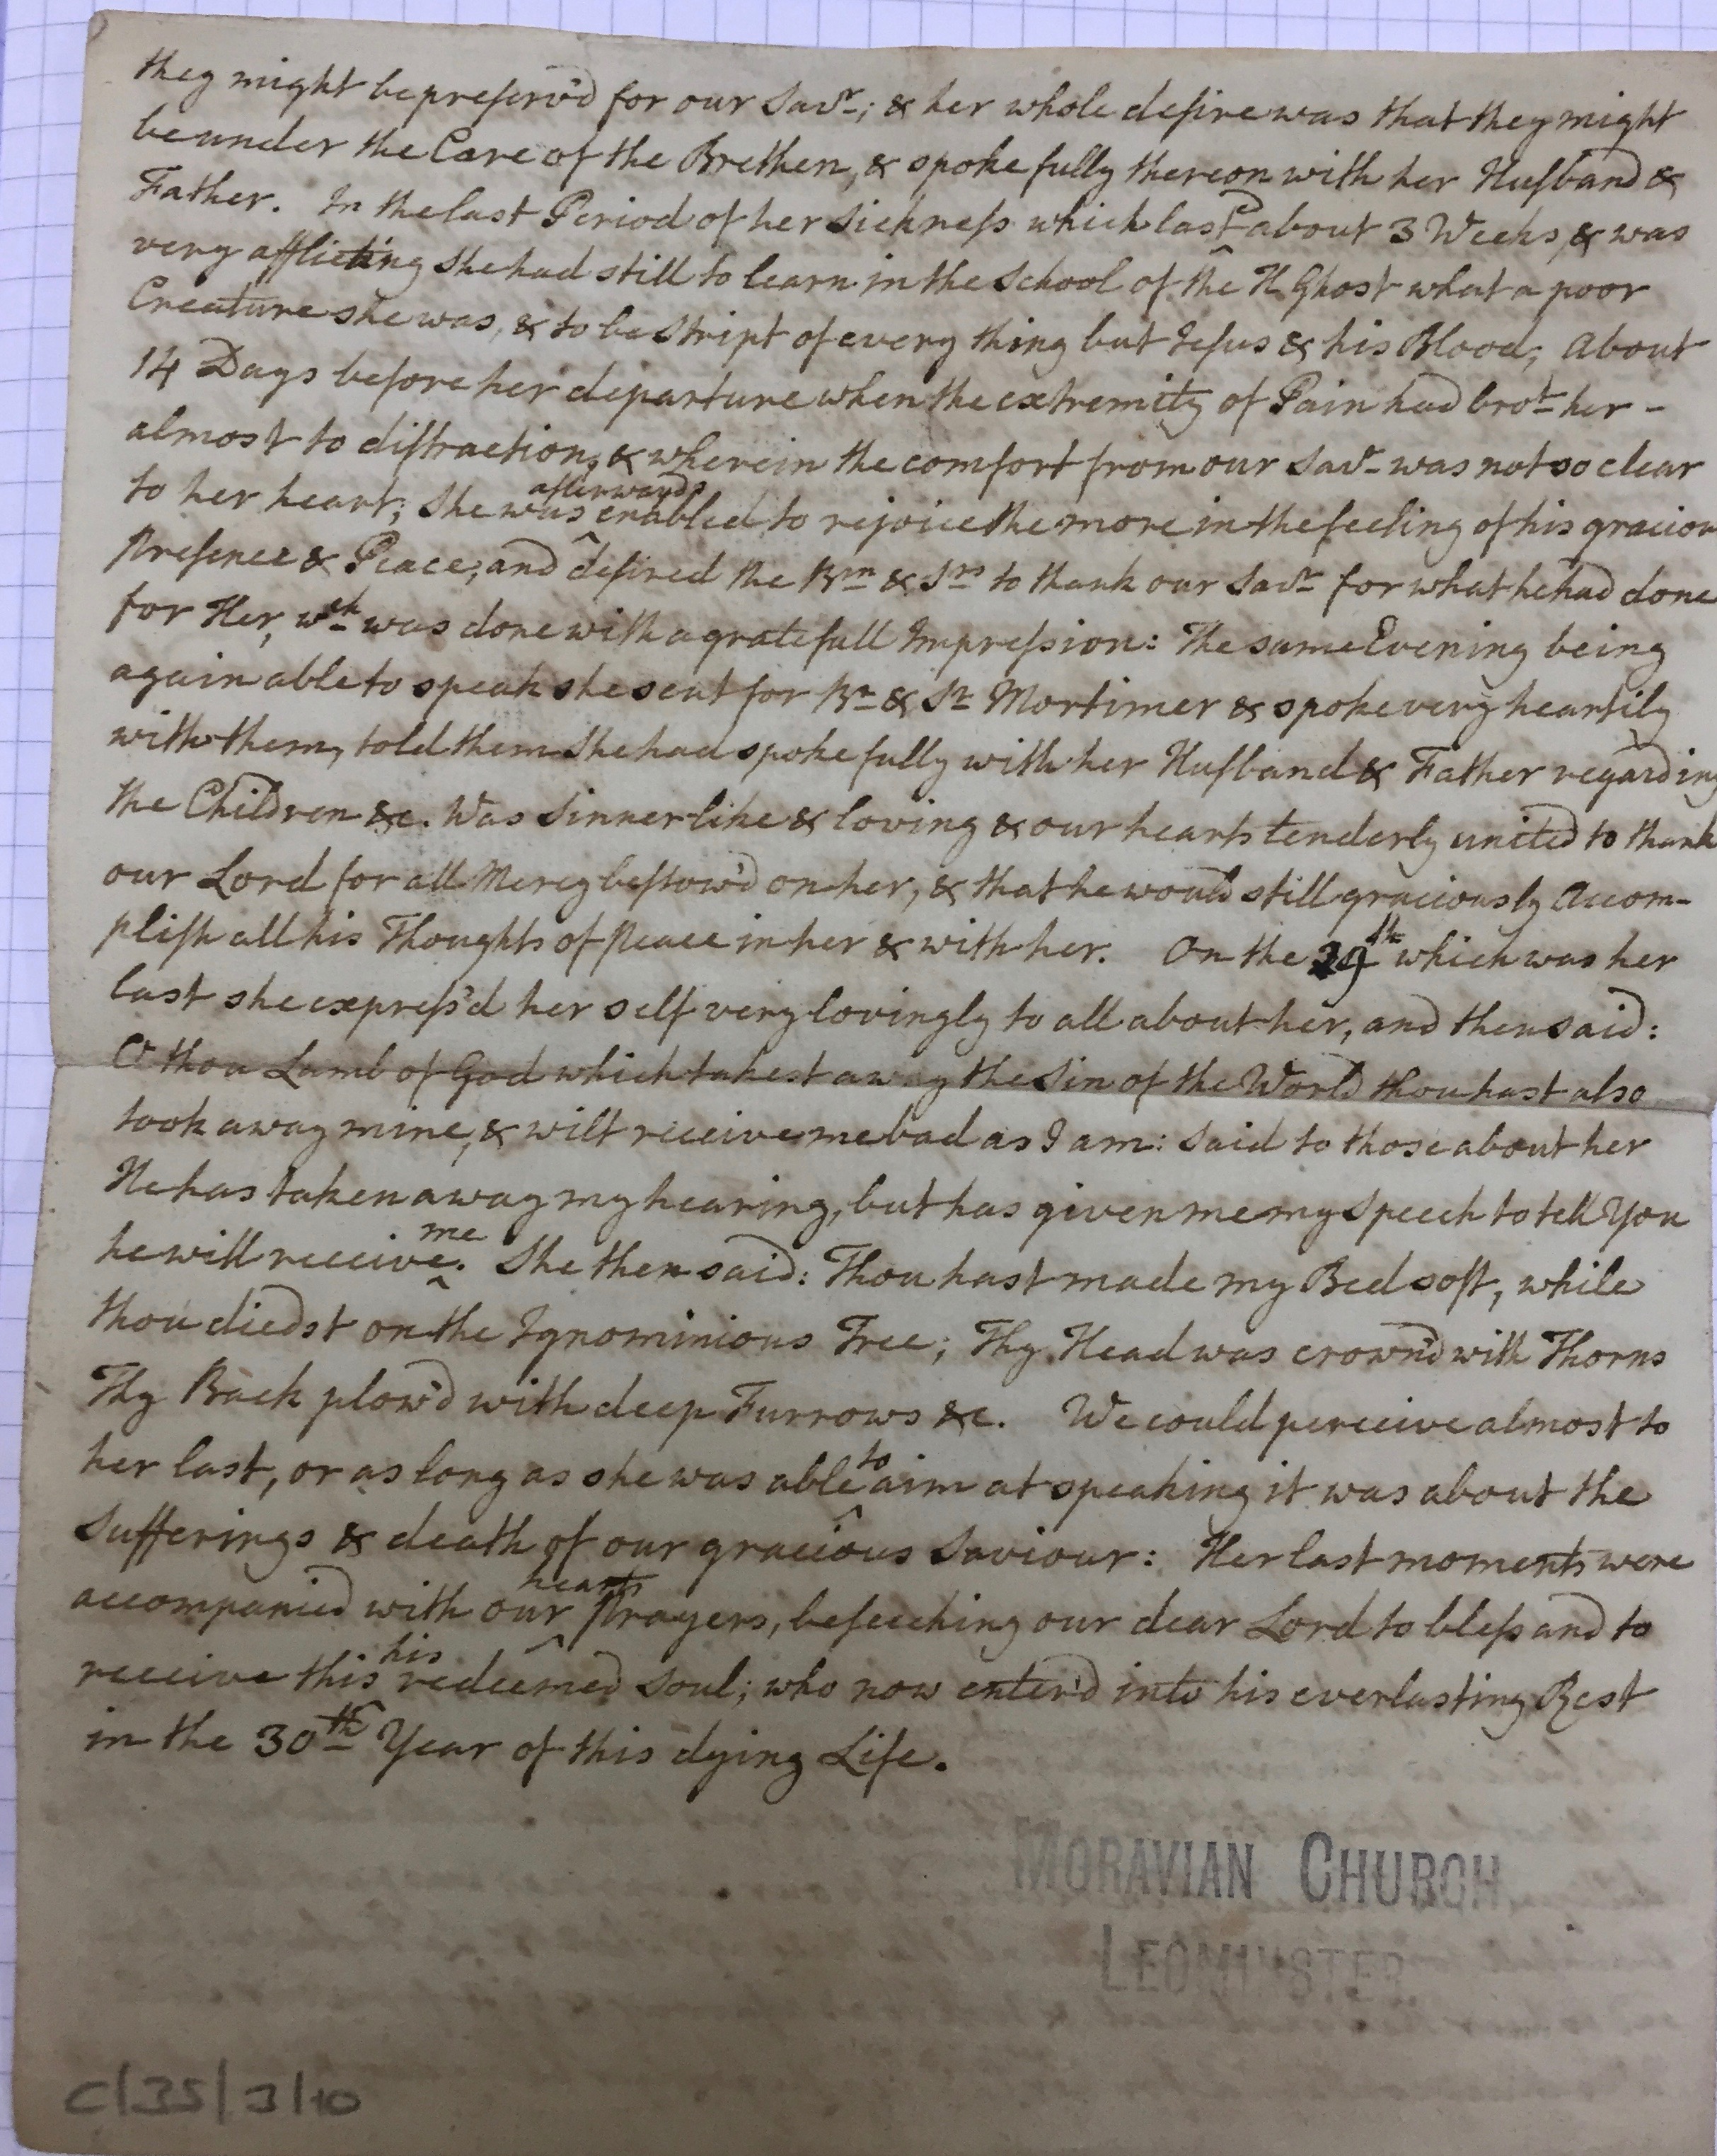 they might be preserv'd for our Savr; & her whole desire was that they might
be under the Care of the Brethen, & spoke fully thereon with her Husband &
Father. In the last Period of her Sickness which lastd about 3 Weeks, & was
very afflicting she had still to learn in the School of the H Ghost what a poor
Creature she was, & to be stript of every thing but Jesus & his Blood; About
14 Days before her departure when the extremity of Pain had brot her -
almost to distraction, & wherein the comfort from our Savr was not so clear
to her heart; She was afterwards enabled to rejoice the more in the feeling of his graciou
Presence & Peace; and desired the Brn & Srs to thank our Savr for what he had done
for Her, wch was done with a gratefull Impression: The same Evening being
again able to speak she sent for Br & Sr Mortimer & spoke very heartily
with them, told them she had spoke fully with her Husband & Father regarding
the Children &c. Was Sinnerlike & loving & our hearts tenderly united to thank
our Lord for all Mercy bestow'd on her, & that he would still graciously Accom-
plish all his Thoughts of peace in her & with her. On the 29th which was her
last she express'd her self very lovingly to all about her, and then said:
O thou Lamb of God which takest away the Sin of the World thou hast also
took away mine, & wilt receive me bad as I am: Said to those about her
He has taken away my hearing, but has given me my Speech to tell You
he will receive me. She then said: Thou hast made my Bed soft, while
thou diedst on the Ignominious Tree; Thy Head was crown'd with Thorns
Thy Back plow'd with deep Furrows &c. We could perceive almost to
her last, or as long as she was able to aim at speaking it was about the
Sufferings & death of our gracious Saviour: Her last moments were
accompanied with our hearts Prayers, beseeching our dear Lord to bless and to
receive this his redeemed Soul; who now enter'd into his everlasting Rest
in the 30th Year of this dying Life.
MORAVIAN CHURCH,
LEOMINSTER.
C/35/3/10